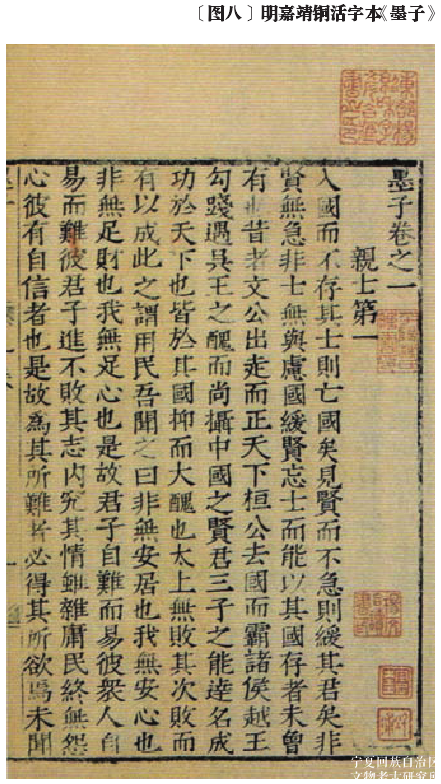 〔图八〕明嘉靖铜活字本《墨子》
墨子卷之一
親士第一
入國而不存其士則亡國矣見賢而不急則緩其君矣非
賢無急非士無與慮國緩賢忘士而能以其國存者未曾
有也昔者文公出走而正天下桓公去國而霸諸侯越王
勾踐遇吳王之醜而尚攝中國之賢君三子之能達名成
功於天下也皆於其國抑而大醜也太上無敗其次敗而
有以成此之謂用民吾聞之曰非無安居也我無安心也
非無足財也我無足心也是故君子自難而易彼衆人自
易而難彼君子進不敗其志内究其情雖雜庸民終無怨
心彼有自信者也是故爲其所難者必得其所欲焉未聞
宁夏回族自治区
文物考古研究所